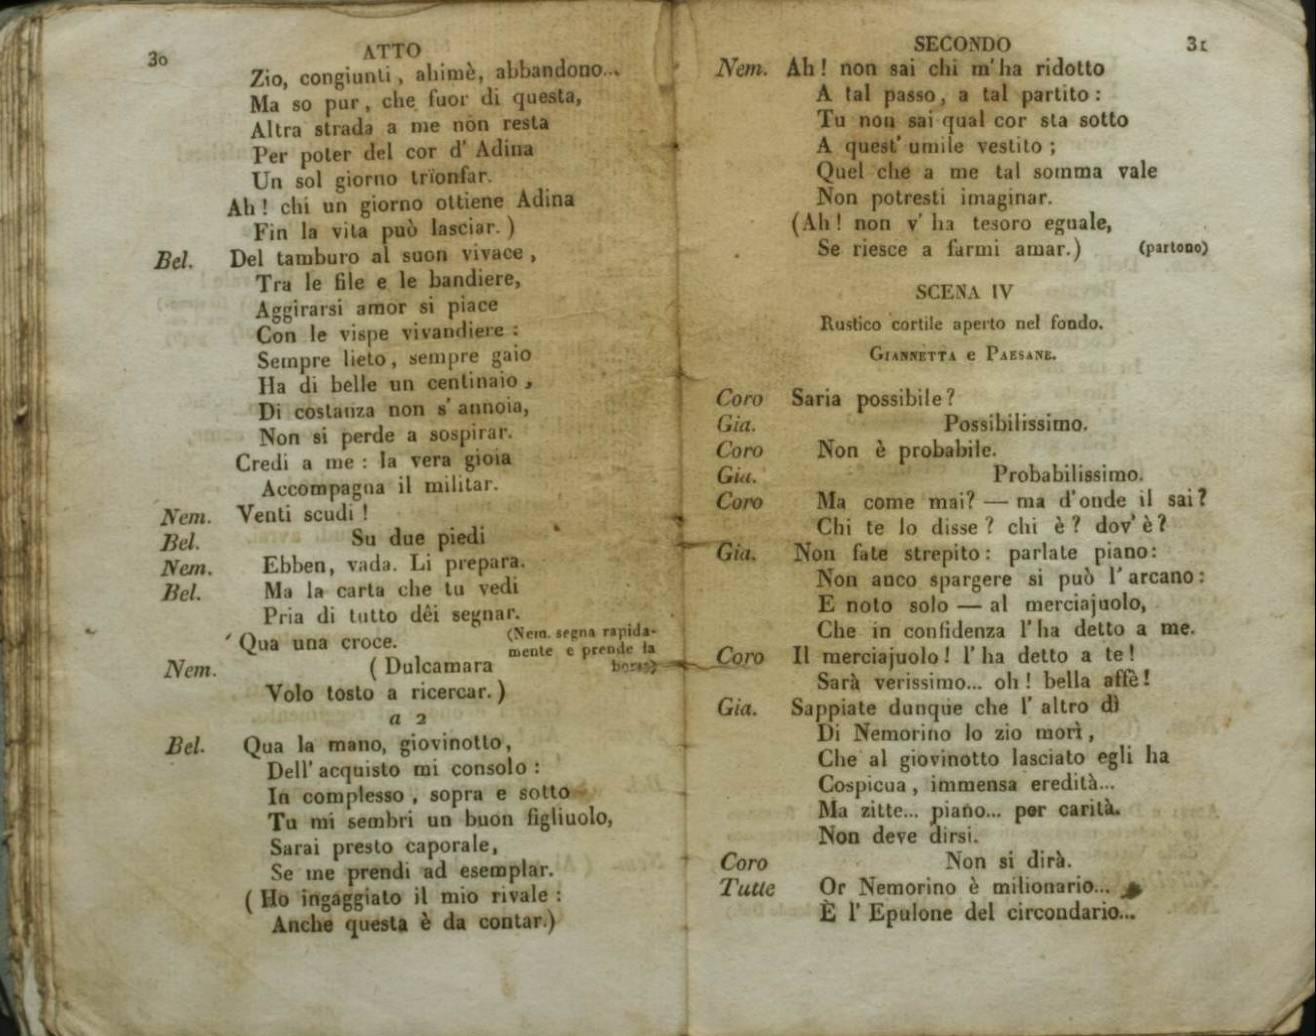 30
ATTO
Zio, congiunti, ahimè, abbandono...
Ma so pur, che fuor di questa,
Altra strada a me non resta
Per poter del cor d' Adina
Un sol giorno trionfar.
Ah! chi un giorno ottiene Adina
Fin la vita può lasciar. )
Bel. Del tamburo al suon vivace,
Tra le file e le bandiere,
Aggirarsi amor si piace
Con le vispe vivandiere:
Sempre lieto, sempre gaio
Ha di belle un centinaio,
Di costanza non s' annoia,
Non si perde a sospirar.
Credi a me: la vera gioia
Accompagna il militar.
Nem. Venti scudi!
Bel. Su due piedi
Nem. Ebben, vada. Li prepara.
Bel. Ma la carta che tu vedi
Pria di tutto dêi segnar.
Qua una croce. (Nem. segna rapida-
mente e prende la
borsa)
Nem. ( Dulcamara
Volo tosto a ricercar. )
a 2
Bel. Qua la mano, giovinotto,
Dell' acquisto mi consolo:
In complesso, sopra e sotto
Tu mi sembri un buon figliuolo,
Sarai presto caporale,
Se me prendi ad esemplar.
( Ho ingaggiato il mio rivale:
Anche questa è da contar.)
SECONDO
31
Nem. Ah! non sai chi m' ha ridotto
A tal passo, a tal partito:
Tu non sai qual cor sta sotto
A quest' umile vestito;
Quel che a me tal somma vale
Non potresti imaginar.
(Ah! non v' ha tesoro eguale,
Se riesce a farmi amar.) (partono)
SCENA IV
Rustico cortile aperto nel fondo.
GIANNETTA e PAESANE.
Coro Saria possibile?
Gia. Possibilissimo.
Coro Non è probabile.
Gia. Probabilissimo.
Coro Ma come mai? — ma d'onde il sai?
Chi te lo disse? chi è? dov'è?
Gia. Non fate strepito: parlate piano:
Non anco spargere si può l' arcano:
E noto solo — al merciajuolo,
Che in confidenza l'ha detto a me.
Coro Il merciajuolo! l' ha detto a te!
Sarà verissimo... oh! bella affè!
Gia. Sappiate dunque che l' altro dì
Di Nemorino lo zio morì,
Che al giovinotto lasciato egli ha
Cospicua, immensa eredità...
Ma zitte... piano... per carità.
Non deve dirsi.
Coro Non si dirà.
Tutte Or Nemorino è milionario...
È l' Epulone del circondario...